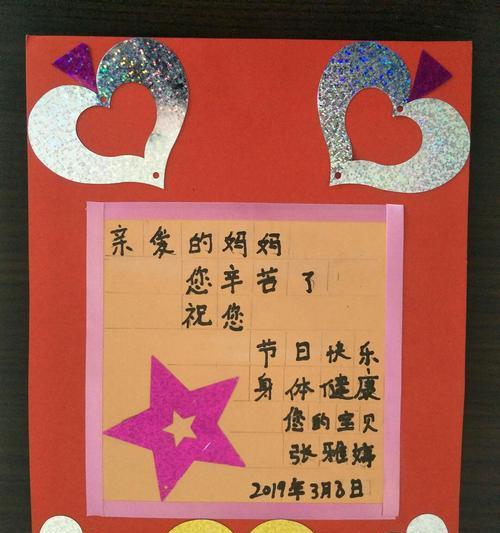 亲爱的妈妈
您辛苦了
祝您
节日快乐
身体健康
您的宝贝
张雅婷
2019年3月8日